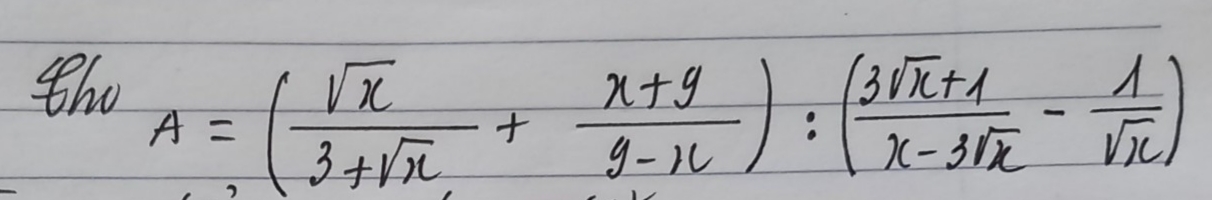 Cho A = (√x / (3 + √x) + (x + 9) / (9 - x)) : ((3√x + 1) / (x - 3√x) - 1 / √x)